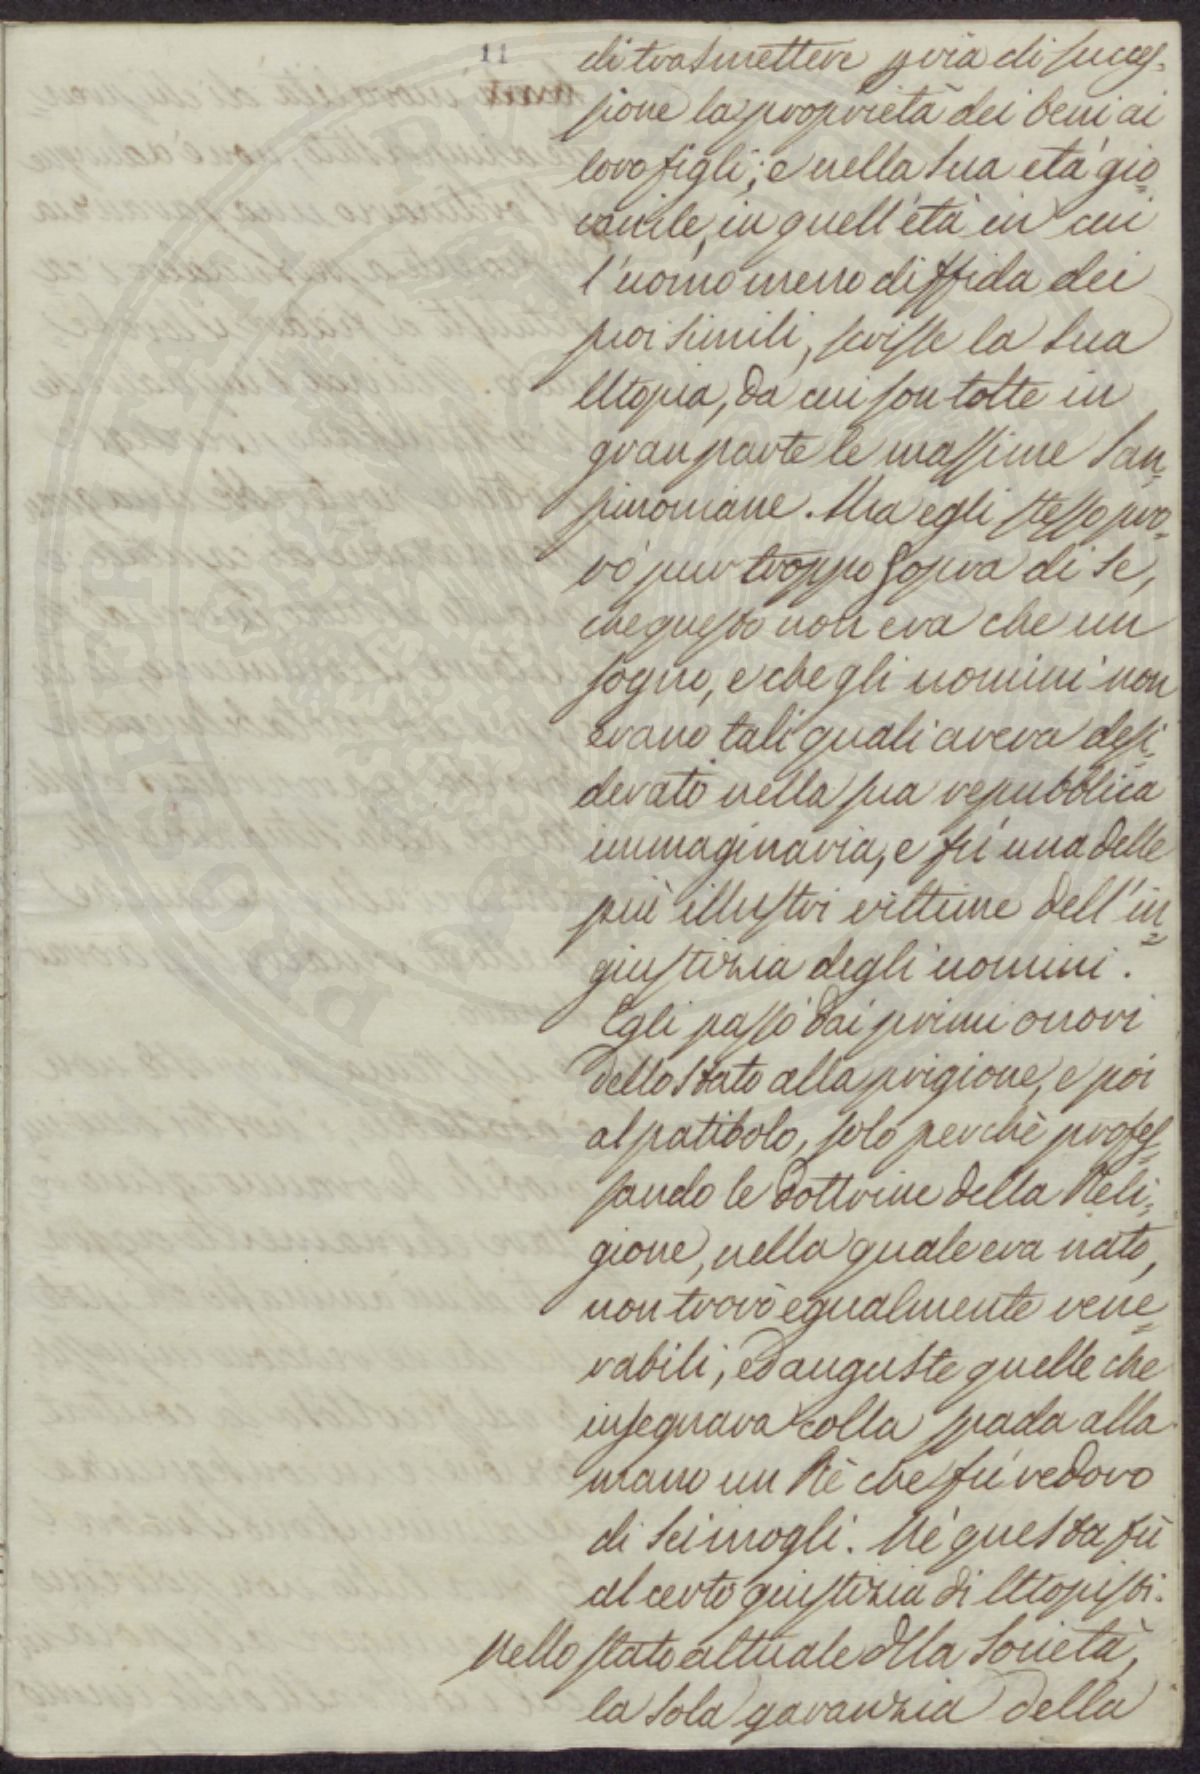 11
di trasmettere p via di succes=
sione la proprietà dei beni ai
loro figli; e nella sua età gio=
vanile, in quell'età in cui
l'uomo meno diffida dei
suoi simili, scrisse la sua
Utopia, da cui son tolte in
gran parte le massime San=
simoniane. Ma egli stesso pro=
vò pur troppo sopra di se,
che questo non era che un
sogno, e che gli uomini non
erano tali quali aveva desi=
derato nella sua repubblica
immaginaria, e fù una delle
più illustri vittime dell'in=
giustizia degli uomini.
Egli passò dai primi onori
dello Stato alla prigione, e poi
al patibolo, solo perchè profes=
sando le dottrine della Reli=
gione, nella quale era nato,
non trovò egualmente vene=
rabili, ed auguste quelle che
insegnava colla spada alla
mano un Rè che fù vedovo
di sei mogli. Nè questa fù
al certo giustizia di Utopisti.
Nello stato attuale della Società,
la sola garanzia della